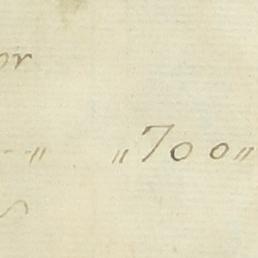 or
" "700"